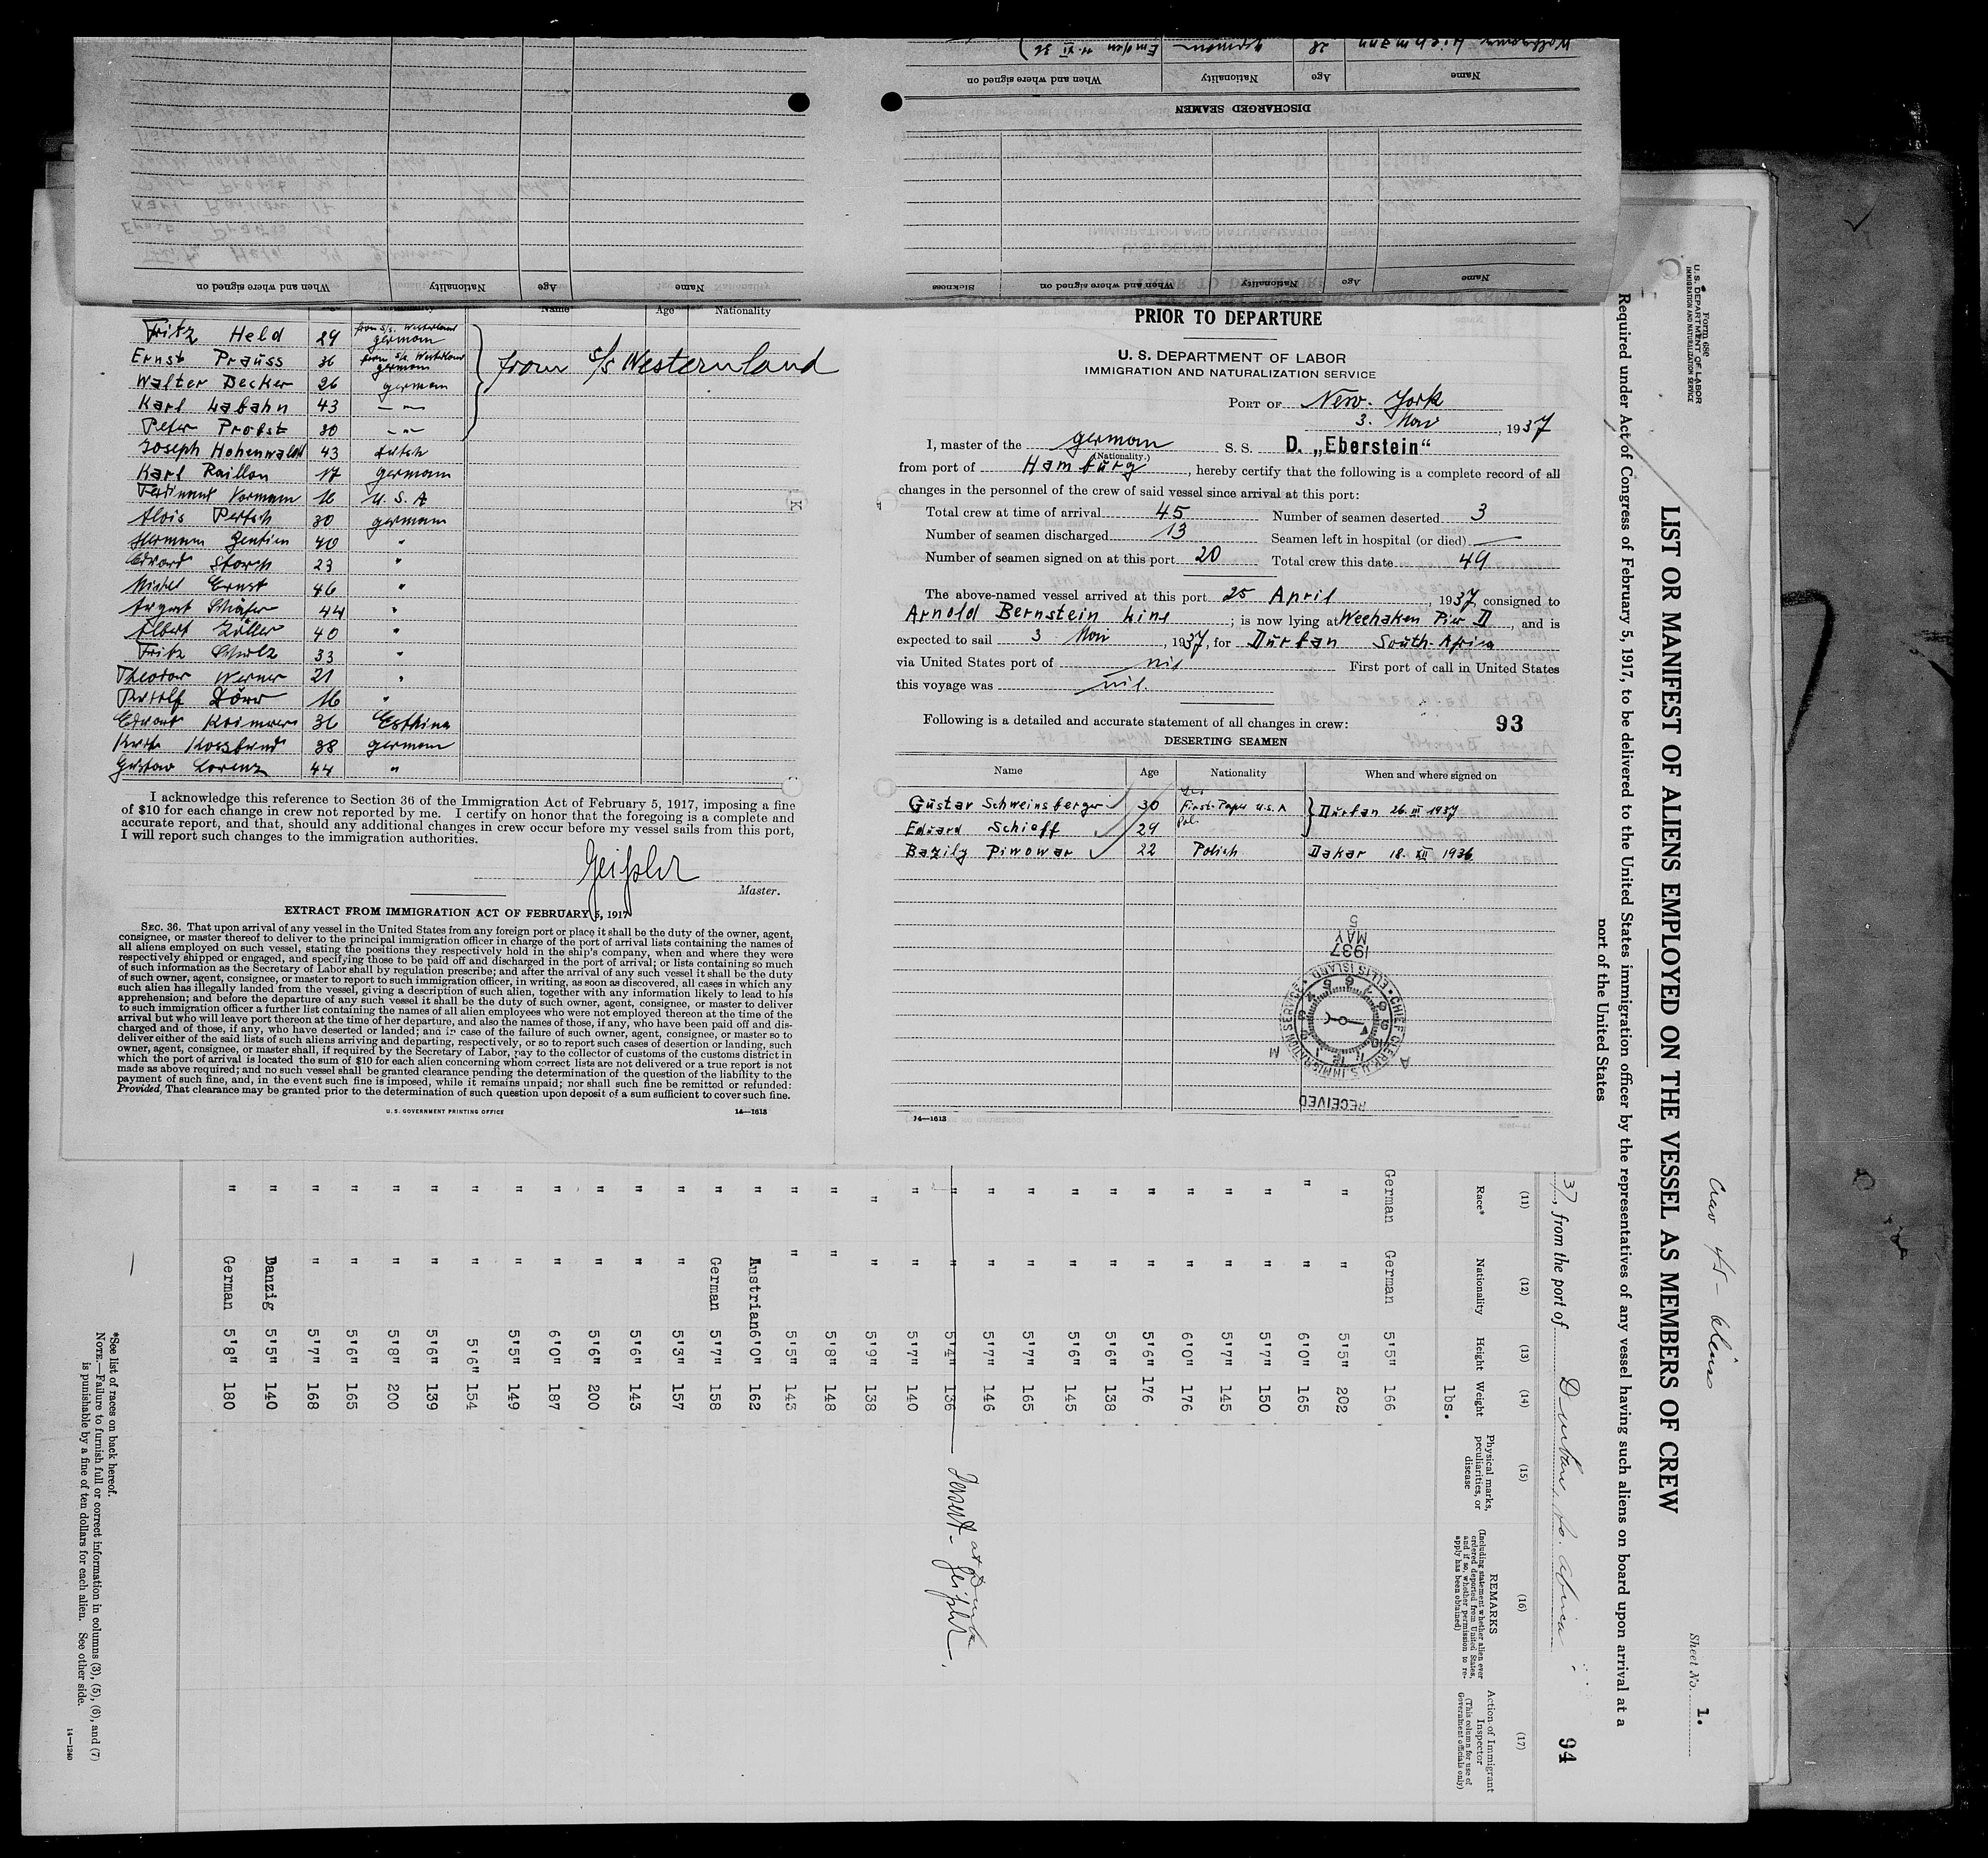 Wolfgang Wichmann 28 german Emden 4 XI 36
Name Age Nationality When and where signed on
DISCHARGED SEAMEN
Name Age Nationality When and where signed on Sickness
Name Age Nationality When and where signed on
Name Age Nationality
Fritz Held 29 from S/S. Westernland german
Ernst Prauss 36 from S/S. Westernland german
Walter Becker 26 german
Karl Labahn 43 — " —
Peter Probst 30 — " —
from S/S Westernland
Joseph Hohenwald 43 dutch
Karl Raillon 17 german
Ferdinant Vormann 16 U. S. A
Alois Pertsch 30 german
Hermann Zentien 40 "
Edward Storch 23 "
Michel Ernst 46 "
August Schäfer 44 "
Albert Zöller 40 "
Fritz Scholz 33 "
Theodor Werner 21 "
Rudolf Dörr 16 "
36
german
38
Gustav Lorenz 44 "
I acknowledge this reference to Section 36 of the Immigration Act of February 5, 1917, imposing a fine
of $10 for each change in crew not reported by me. I certify on honor that the foregoing is a complete and
accurate report, and that, should any additional changes in crew occur before my vessel sails from this port,
I will report such changes to the immigration authorities.
Geißler
Master.
EXTRACT FROM IMMIGRATION ACT OF FEBRUARY 5, 1917
SEC. 36. That upon arrival of any vessel in the United States from any foreign port or place it shall be the duty of the owner, agent,
consignee, or master thereof to deliver to the principal immigration officer in charge of the port of arrival lists containing the names of
all aliens employed on such vessel, stating the positions they respectively hold in the ship's company, when and where they were
respectively shipped or engaged, and specifying those to be paid off and discharged in the port of arrival; or lists containing so much
of such information as the Secretary of Labor shall by regulation prescribe; and after the arrival of any such vessel it shall be the duty
of such owner, agent, consignee, or master to report to such immigration officer, in writing, as soon as discovered, all cases in which any
such alien has illegally landed from the vessel, giving a description of such alien, together with any information likely to lead to his
apprehension; and before the departure of any such vessel it shall be the duty of such owner, agent, consignee, or master to deliver
to such immigration officer a further list containing the names of all alien employees who were not employed thereon at the time of the
arrival but who will leave port thereon at the time of her departure, and also the names of those, if any, who have been paid off and dis-
charged and of those, if any, who have deserted or landed; and in case of the failure of such owner, agent, consignee, or master so to
deliver either of the said lists of such aliens arriving and departing, respectively, or so to report such cases of desertion or landing, such
owner, agent, consignee, or master shall, if required by the Secretary of Labor, pay to the collector of customs of the customs district in
which the port of arrival is located the sum of $10 for each alien concerning whom correct lists are not delivered or a true report is not
made as above required; and no such vessel shall be granted clearance pending the determination of the question of the liability to the
payment of such fine, and, in the event such fine is imposed, while it remains unpaid; nor shall such fine be remitted or refunded:
Provided, That clearance may be granted prior to the determination of such question upon deposit of a sum sufficient to cover such fine.
U. S. GOVERNMENT PRINTING OFFICE 14—1613
PRIOR TO DEPARTURE
U. S. DEPARTMENT OF LABOR
IMMIGRATION AND NATURALIZATION SERVICE
PORT OF New-York
3. Mai, 1937
I, master of the german S. S. D. „Eberstein“
(Nationality.)
from port of Hamburg, hereby certify that the following is a complete record of all
changes in the personnel of the crew of said vessel since arrival at this port:
Total crew at time of arrival 45 Number of seamen deserted 3
Number of seamen discharged 13 Seamen left in hospital (or died) —
Number of seamen signed on at this port 20 Total crew this date 49
The above-named vessel arrived at this port 25 April, 1937, consigned to
Arnold Bernstein Line; is now lying at Weehaken Pier D, and is
expected to sail 3 Mai, 1937, for Durban South-Africa
via United States port of nil First port of call in United States
this voyage was nil.
Following is a detailed and accurate statement of all changes in crew: 93
DESERTING SEAMEN
Name Age Nationality When and where signed on
Gustav Schweinsberger 30 First-Paper U.S.A Durban 26. III 1937
Eduard Schieff 29 Pol.
Bazily Piwowar 22 Polish Dakar 18. XII 1936
1937
MAY
5
CHIEF CLERK U.S. IMMIGRATION SERVICE • ELLIS ISLAND •
A M
RECEIVED
14—1613
Form 689
U. S. DEPARTMENT OF LABOR
IMMIGRATION AND NATURALIZATION SERVICE
Crew 45 - Aliens
Sheet No. 1.
LIST OR MANIFEST OF ALIENS EMPLOYED ON THE VESSEL AS MEMBERS OF CREW
Required under Act of Congress of February 5, 1917, to be delivered to the United States immigration officer by the representatives of any vessel having such aliens on board upon arrival at a
port of the United States
37, from the port of Durban, So. Africa 94
(11) (12) (13) (14) (15) (16) (17)
Race* Nationality Height Weight Physical marks, peculiarities, or disease REMARKS (Including statement whether alien ever ordered deported from United States, and if so, whether permission to re-apply has been obtained) Action of Immigrant Inspector (This column for use of Government officials only)
lbs.
German German 5'5" 166
" " 5'5" 202
" " 6'0" 165
" " 5'7" 150
" " 5'7" 145
" " 6'0" 176
" " 5'6" 176
" " 5'6" 138
" " 5'6" 145
" " 5'7" 165
" " 5'7" 146
" " 5'4" 136 Desert - at Durban Geißler.
" " 5'7" 140
" " 5'9" 138
" " 5'8" 148
" " 5'5" 143
" Austrian 6'0" 162
" German 5'7" 158
" " 5'3" 157
" " 5'6" 143
" " 5'6" 200
" " 6'0" 187
" " 5'5" 149
" " 5'6" 154
" " 5'6" 139
" " 5'8" 200
" " 5'6" 165
" " 5'7" 168
" Danzig 5'5" 140
" German 5'8" 180
*See list of races on back hereof.
NOTE.—Failure to furnish full or correct information in columns (3), (5), (6), and (7)
is punishable by a fine of ten dollars for each alien. See other side.
14—1240